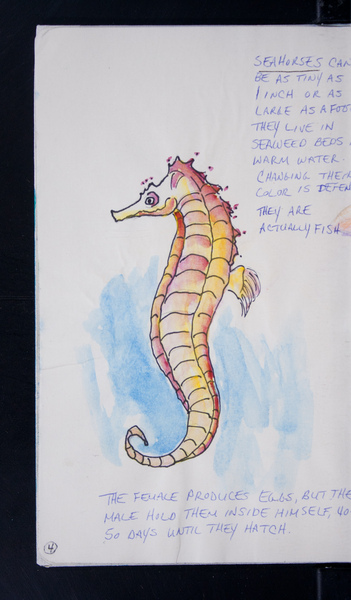 SEAHORSES CAN
BE AS TINY AS
1 INCH OR AS
LARGE AS A FOOT
THEY LIVE IN
SEAWEED BEDS
WARM WATER.
CHANGING THEIR
COLOR IS DEFEN
THEY ARE
ACTUALLY FISH
THE FEMALE PRODUCES EGGS, BUT THE
MALE HOLD THEM INSIDE HIMSELF, 40
50 DAYS UNTIL THEY HATCH.
4